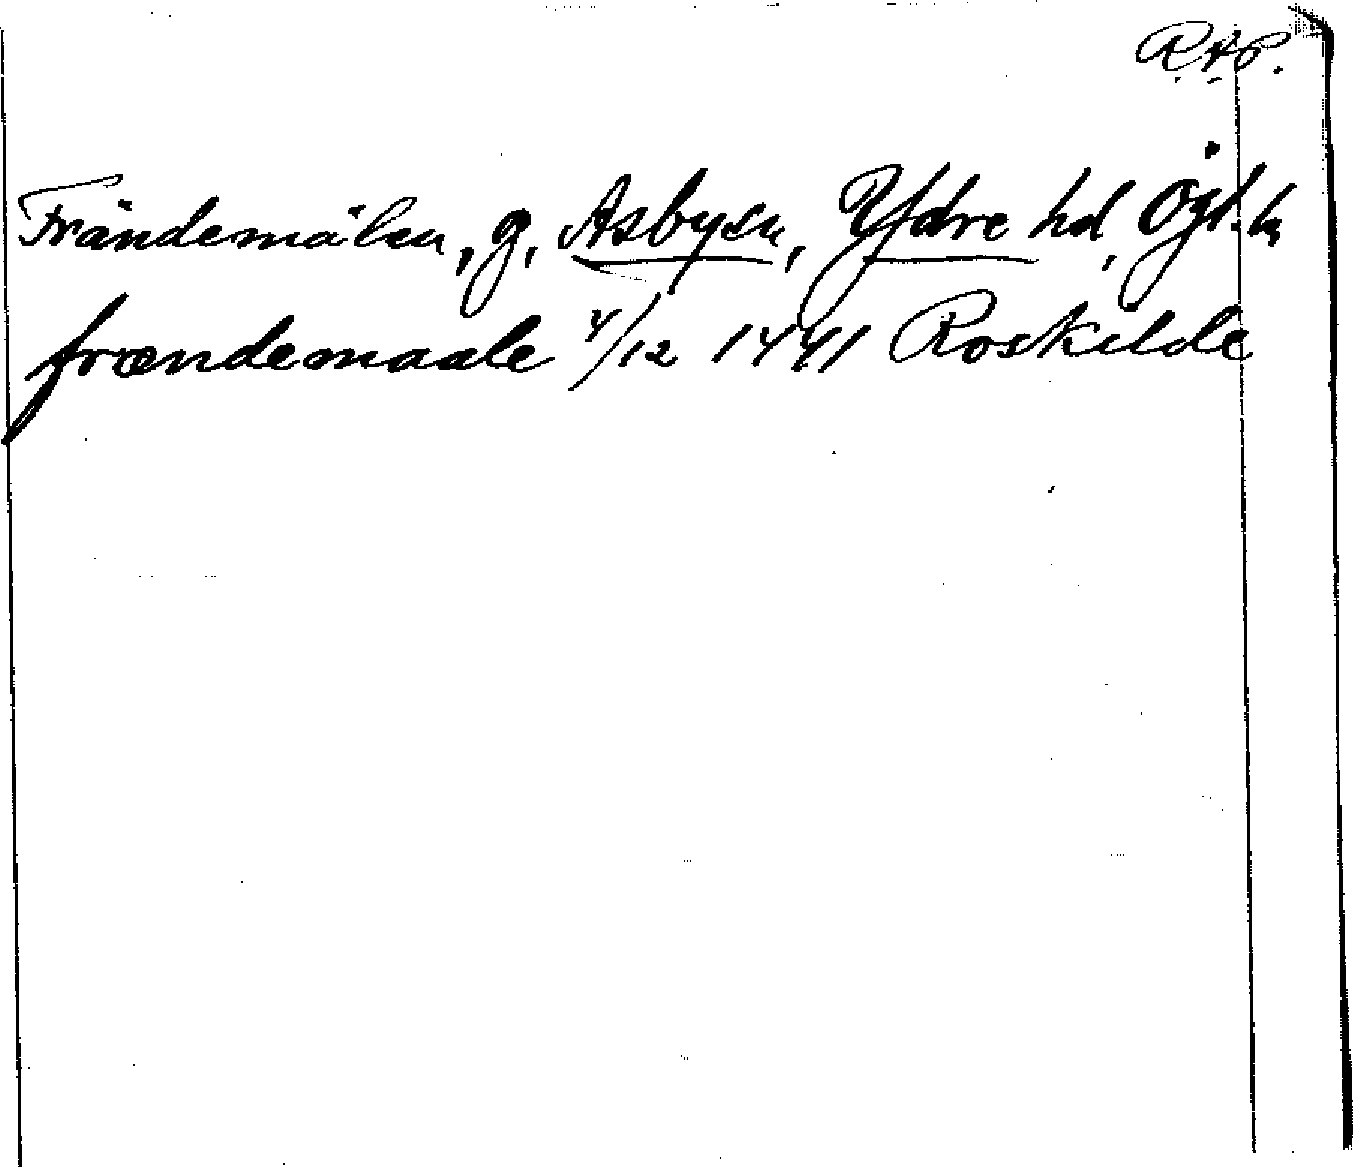 R.A.P.
Frändemålen, g, Asby sn, Ydre hd, Ögl. ln
frændemaale 4/12 1441 Roskilde